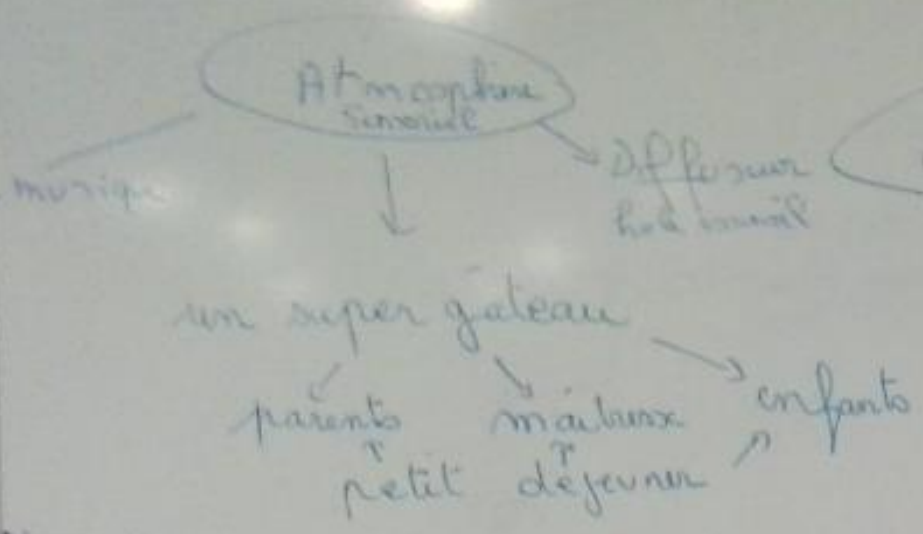 Atmosphere
sensoriel
musique
Diffuseur
un super gâteau
parents maîtresse enfants
petit déjeuner